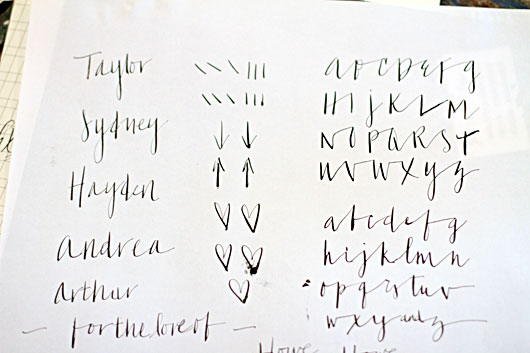 Taylor
Sydney
Hayden
andrea
arthur
— for the love of —
a b c D E F g
H I j K L M
N O P Q R S T
U V W X Y Z
a b c d e f g
h i j k l m n
o p q r s t u v
w x y and z
Howe Howe